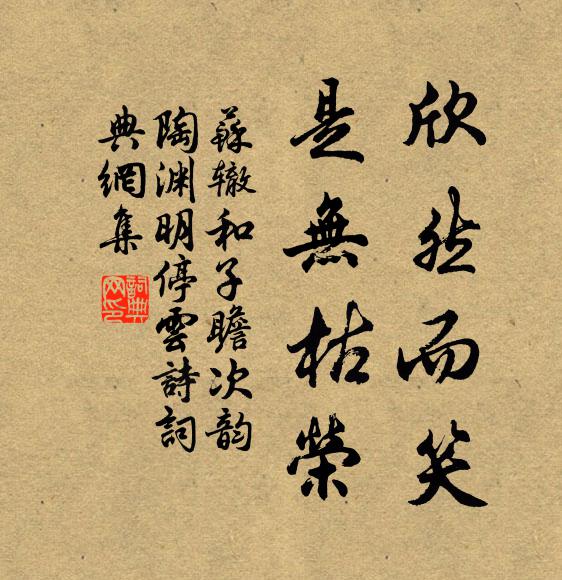 欣然而笑
是無枯榮
蘇辙和子瞻次韵
陶渊明停雲詩詞
典網集
詞典網印